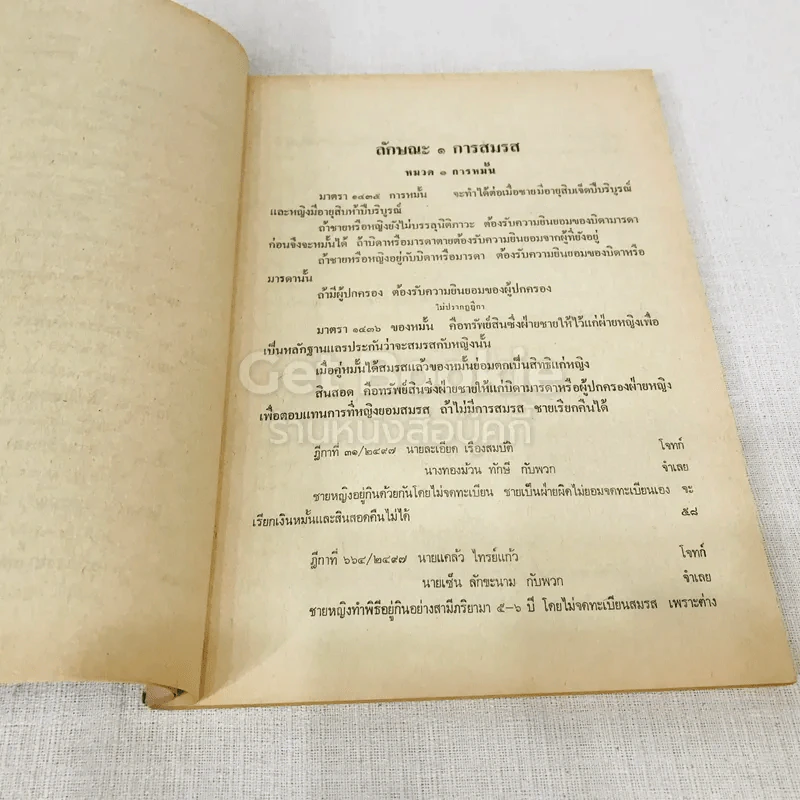 ลักษณะ ๑ การสมรส
หมวด ๑ การหมั้น
มาตรา ๑๔๓๕ การหมั้น จะทำได้ต่อเมื่อชายมีอายุสิบเจ็ดปีบริบูรณ์
และหญิงมีอายุสิบห้าปีบริบูรณ์
ถ้าชายหรือหญิงยังไม่บรรลุนิติภาวะ ต้องรับความยินยอมของบิดามารดา
ก่อนจึงจะหมั้นได้ ถ้าบิดาหรือมารดาตายต้องรับความยินยอมจากผู้ที่ยังอยู่
ถ้าชายหรือหญิงอยู่กับบิดาหรือมารดา ต้องรับความยินยอมของบิดาหรือ
มารดานั้น
ถ้ามีผู้ปกครอง ต้องรับความยินยอมของผู้ปกครอง
ไม่ปรากฏฎีกา
มาตรา ๑๔๓๖ ของหมั้น คือทรัพย์สินซึ่งฝ่ายชายให้ไว้แก่ฝ่ายหญิงเพื่อ
เป็นหลักฐานและประกันว่าจะสมรสกับหญิงนั้น
เมื่อคู่หมั้นได้สมรสแล้วของหมั้นย่อมตกเป็นสิทธิแก่หญิง
สินสอด คือทรัพย์สินซึ่งฝ่ายชายให้แก่บิดามารดาหรือผู้ปกครองฝ่ายหญิง
เพื่อตอบแทนการที่หญิงยอมสมรส ถ้าไม่มีการสมรส ชายเรียกคืนได้
ร้านหนังสือนคกี
ฎีกาที่ ๓๑/๒๔๙๗ นายละเอียด เรืองสมบัติ โจทก์
นางทองม้วน ทักษี กับพวก จำเลย
ชายหญิงอยู่กินด้วยกันโดยไม่จดทะเบียน ชายเป็นฝ่ายผิดไม่ยอมจดทะเบียนเอง จะ
เรียกเงินหมั้นและสินสอดคืนไม่ได้ ๕๘
ฎีกาที่ ๖๖๔/๒๔๙๗ นายแคล้ว ไทรย์แก้ว โจทก์
นายเซ็น ลักขะนาม กับพวก จำเลย
ชายหญิงทำพิธีอยู่กินอย่างสามีภริยามา ๕-๖ ปี โดยไม่จดทะเบียนสมรส เพราะต่าง